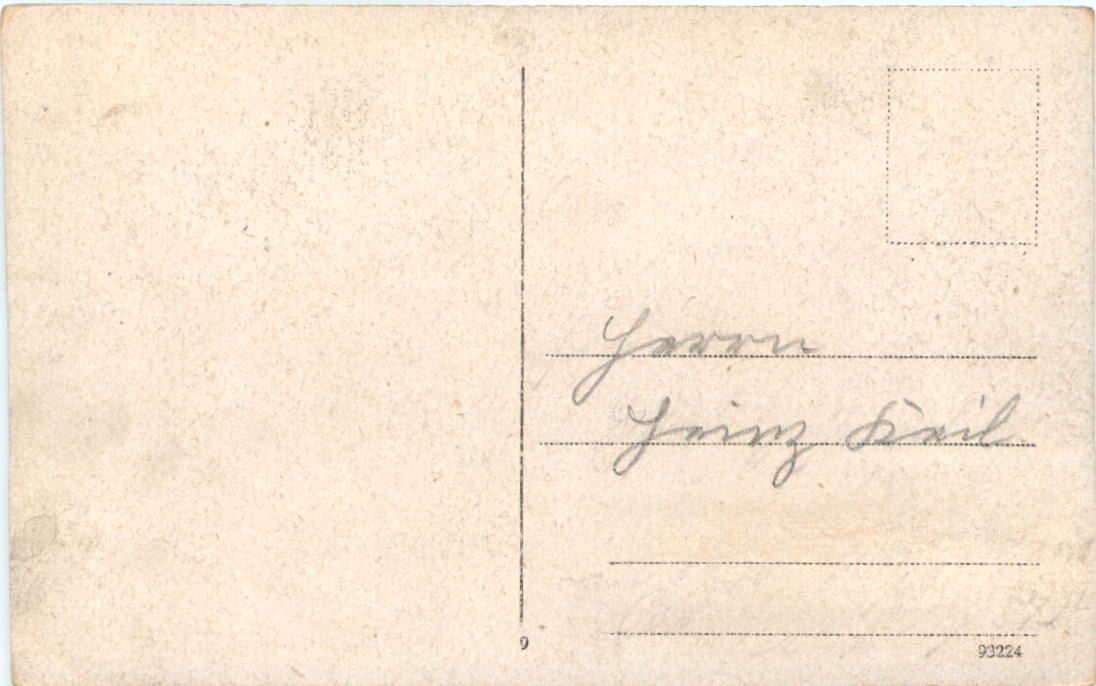 Herrn
Heinz Keil
9
93224